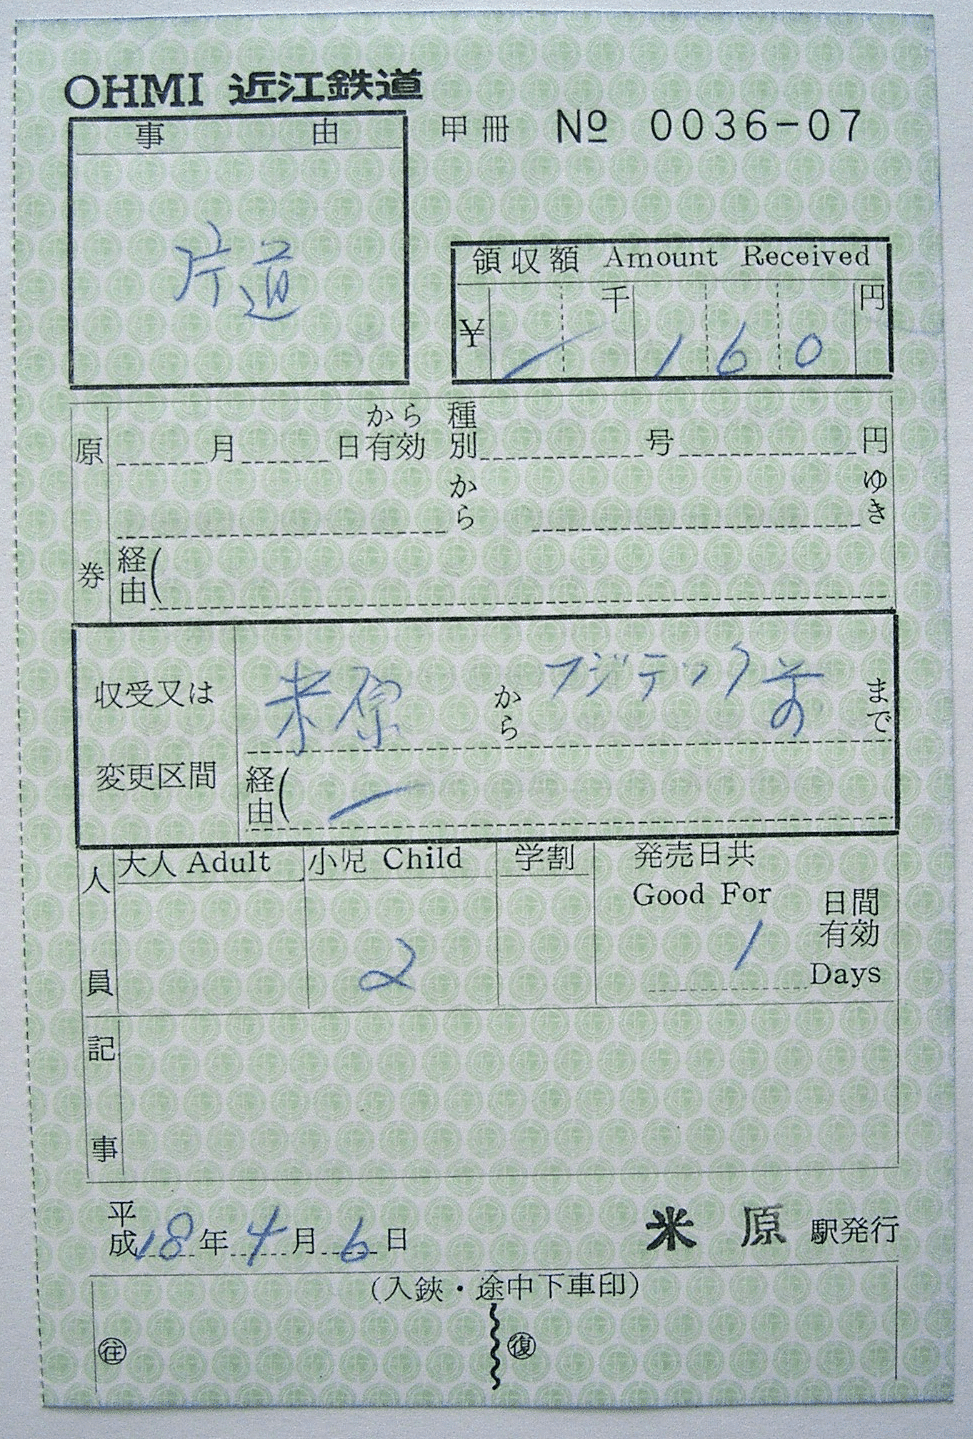 OHMI 近江鉄道
甲冊 № 0036-07
事由
片道
領収額 Amount Received
¥ 千 160 円
原券
月 日から有効 種別 号 円
から ゆき
経由(
収受又は変更区間
米原 から フジテック前 まで
経由(
人員
大人 Adult 小児 Child 学割 発売日共
Good For
2 1 日間有効
Days
記事
平成18年4月6日 米原 駅発行
(入鋏・途中下車印)
㊟往 復